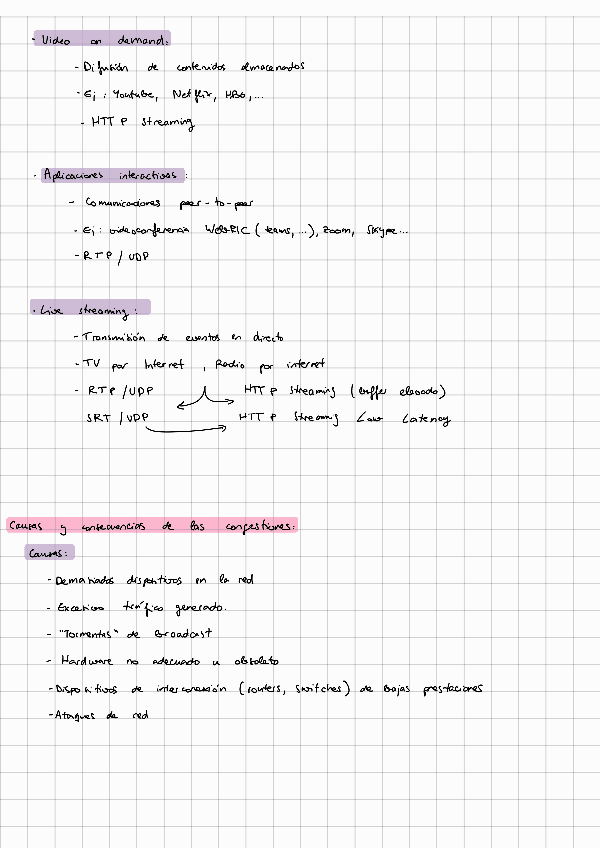 · Video on demand:
- Difusión de contenidos almacenados
- Ej: Youtube, Netflix, HBO,...
- HTTP Streaming
· Aplicaciones interactivas:
- Comunicadores peer-to-peer
- Ej: videoconferencia WebRTC (teams,...), Zoom, Skype...
- RTP / UDP
· Live streaming:
- Transmisión de eventos en directo
- TV por Internet , Radio por internet
- RTP / UDP HTTP Streaming (buffer elevado)
SRT / UDP HTTP Streaming Low Latency
Causas y consecuencias de las congestiones:
Causas:
- Demasiados dispositivos en la red
- Excesivo tráfico generado.
- "Tormentas" de Broadcast
- Hardware no adecuado u obsoleto
- Dispositivos de interconexión (routers, switches) de bajas prestaciones
- Ataques de red